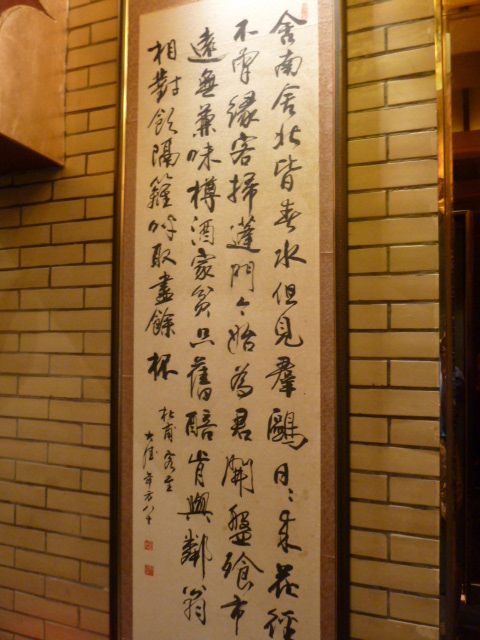 舍南舍北皆春水但見羣鷗日〻來花徑
不曾緣客掃蓬門今始為君開盤飱市
遠無兼味樽酒家貧只舊醅肯與鄰翁
相對飲隔籬呼取盡餘杯
杜甫客至
年方八十